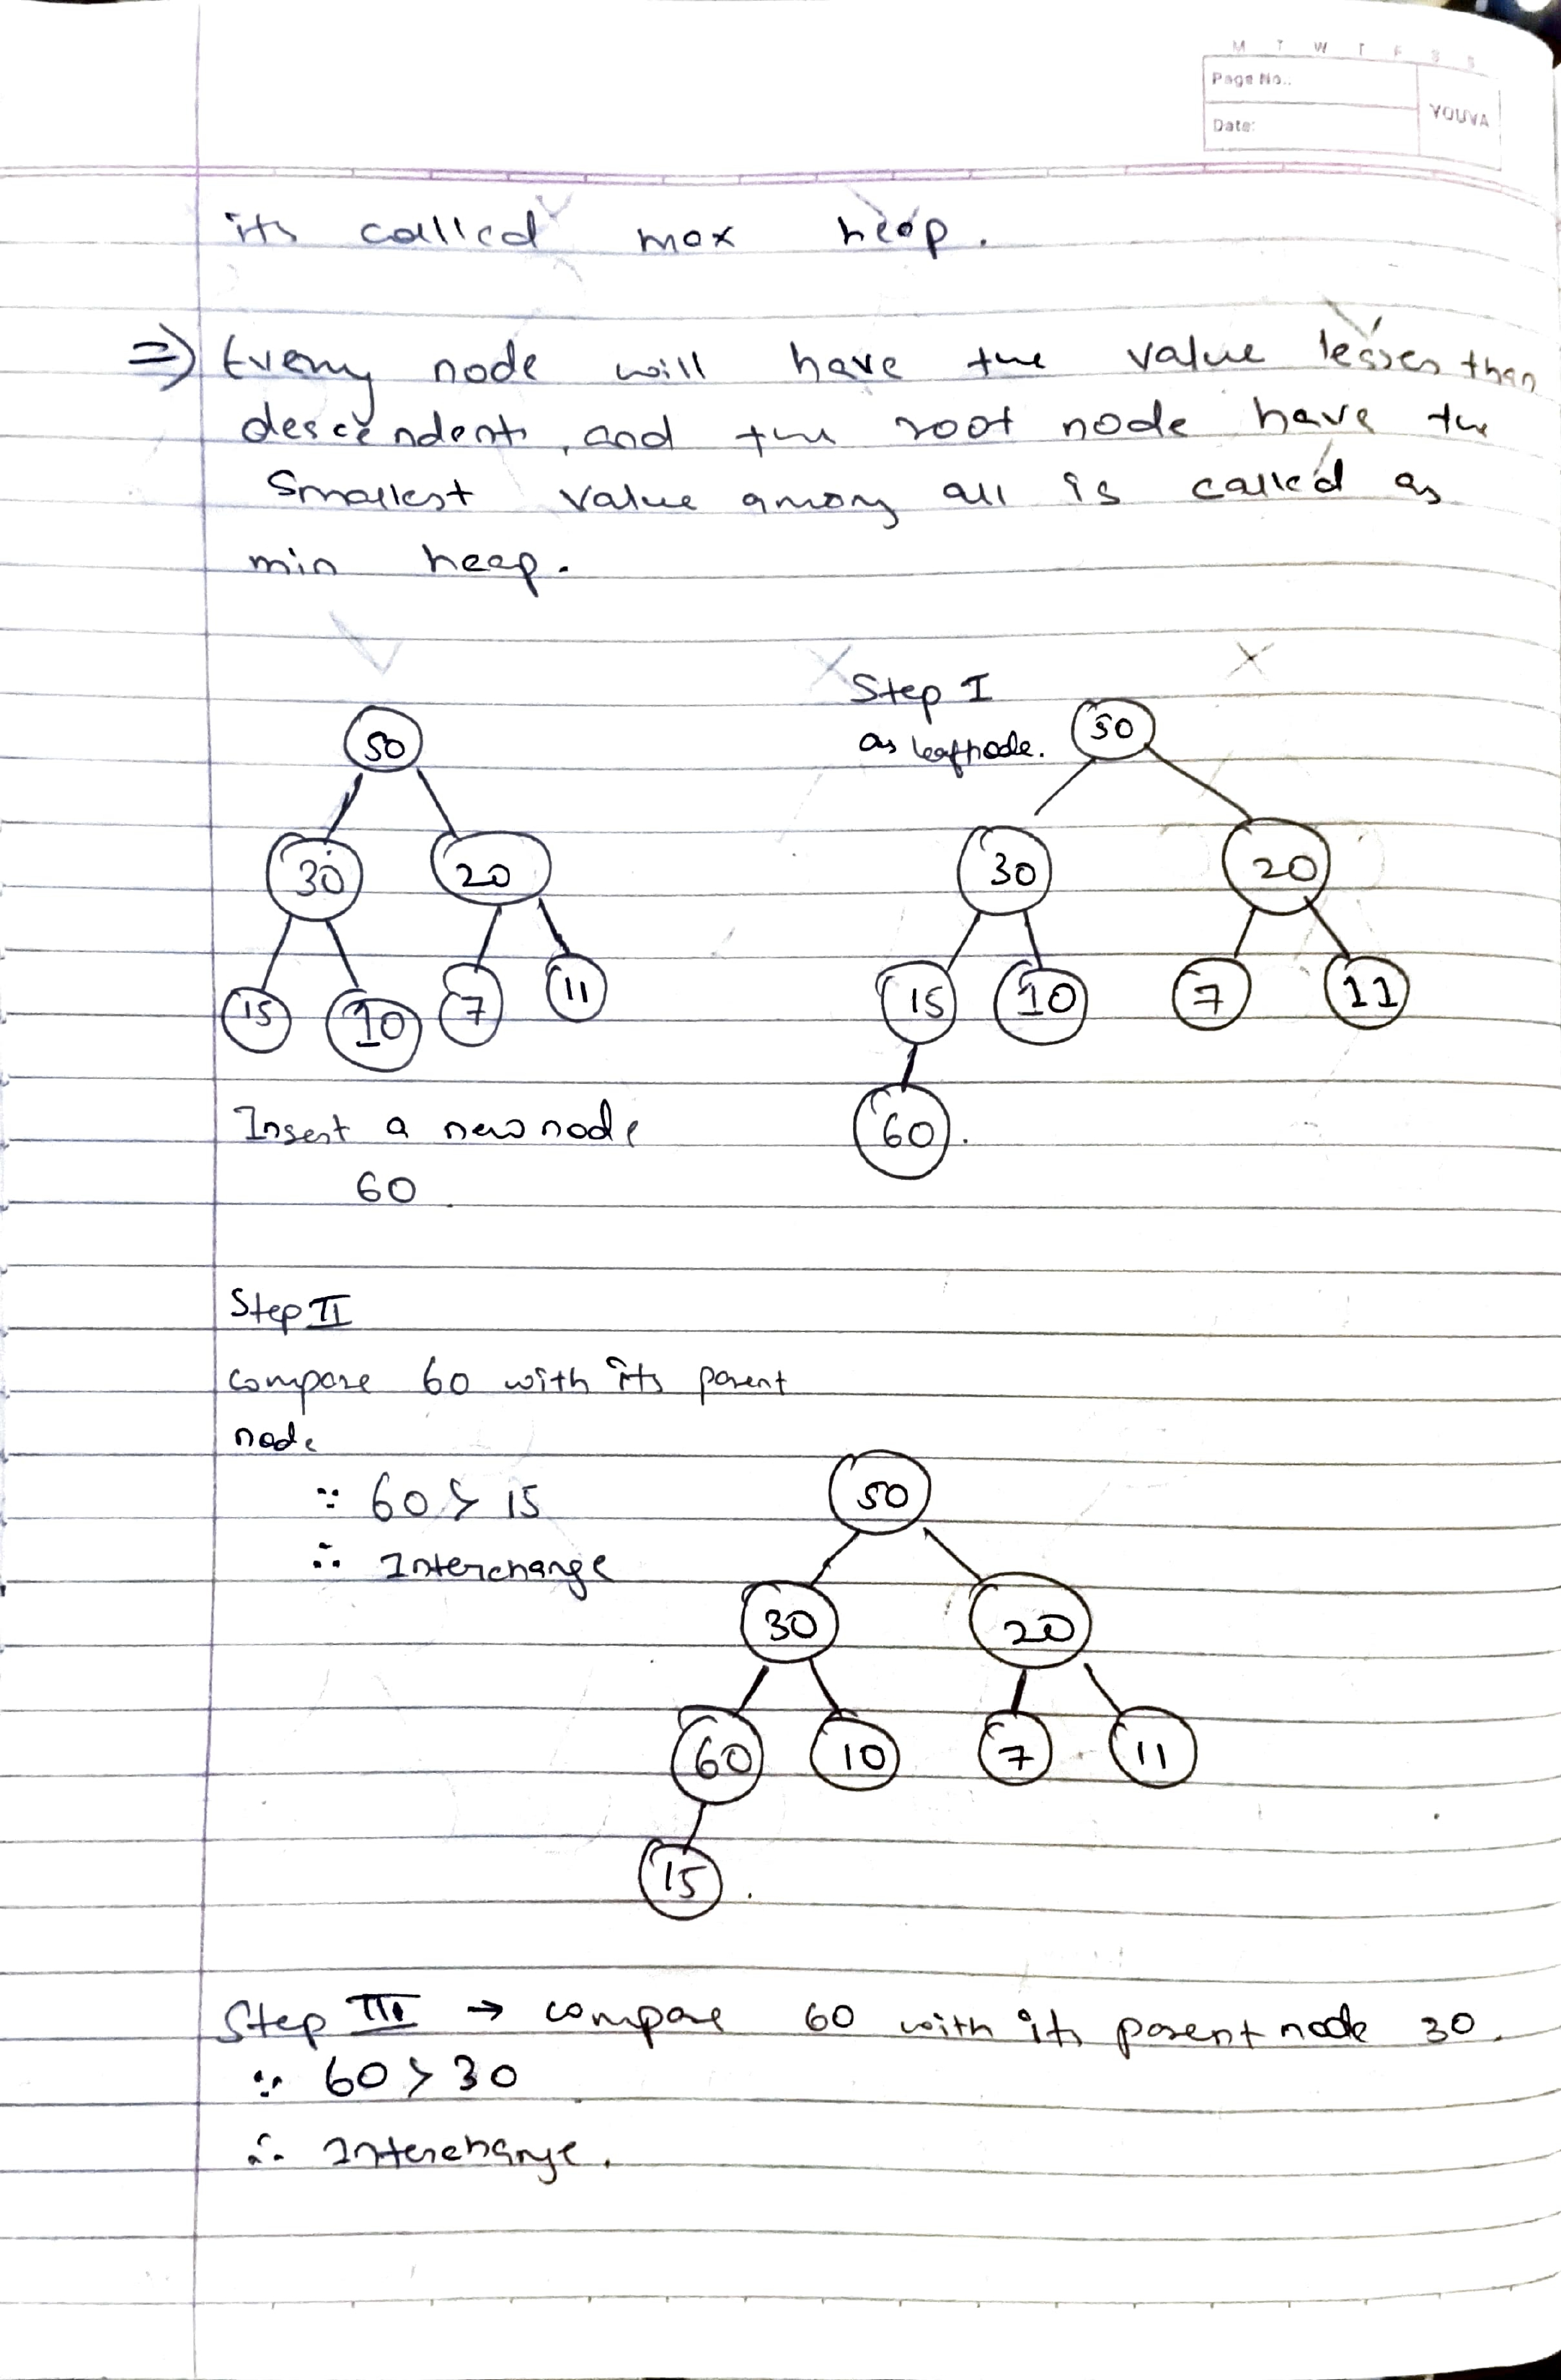 M T W T F S S
Page No.:
Date:
YOUVA
its called max heap.
⇒ Every node will have the value lesser than
descendent, and the root node have the
Smallest value among all is called as
min heap.
Step I
as leafnode.
50
30 20
15 10 7 11
50
30 20
15 10 7 11
60.
Insert a new node
60
Step II
compare 60 with its parent
node
∵ 60 > 15
∴ Interchange
50
30 20
60 10 7 11
15.
Step III → compare 60 with its parent node 30.
∵ 60 > 30
∴ Interchange.